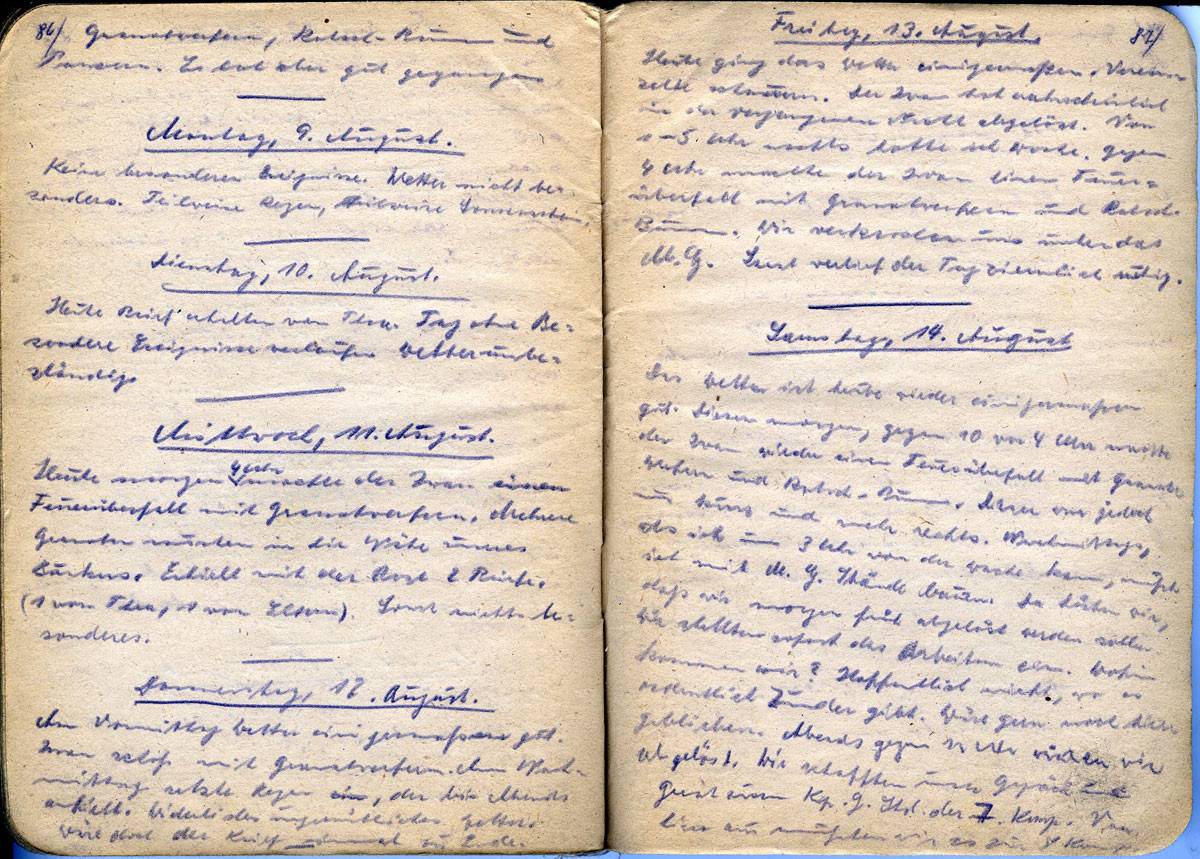 86/ Granatwerfern, Ratsch-Bumm und
Panzern. Es hat aber gut gegangen
Montag, 9. August.
Keine besonderen Ereignisse. Wetter nicht be-
sonders. Teilweise Regen, teilweise Sonnenschein.
Dienstag, 10. August.
Heute Brief erhalten von Thea. Tag ohne Be-
sondere Ereignisse verlaufen Wetter unbe-
ständig.
Mittwoch, 11. August.
Heute morgen 4 Uhr machte der Iwan einen
Feuerüberfall mit Granatwerfern. Mehrere
Granaten in die Nähe unseres
Bunkers. Erhielt mit der Post 2 Briefe.
(1 von Thea, 1 von Eltern). Sonst nichts be-
sonderes.
Donnerstag, 12. August.
Am Vormittag Wetter einigermassen gut.
Iwan schoß mit Granatwerfern. Am Nach-
mittag setzte Regen ein, der bis Abends
anhielt. ungemütliches Wetter.
Wäre doch der Krieg einmal zu Ende.
Freitag, 13. August. 87/
Heute ging das Wetter einigermaßen. Verein-
zelte . Der Iwan hat wahrscheinlich
in der vergangenen Nacht abgelöst. Von
- 5 Uhr nachts hatte ich Wache. Gegen
4 Uhr machte der Iwan einen Feuer-
überfall mit Granatwerfern und Ratsch-
Bumm. Wir verkrochen uns unter das
M.G. Sonst verlief der Tag ziemlich ruhig.
Samstag, 14. August
Das Wetter ist heute wieder einigermassen
gut. Diesen morgen, gegen 10 vor 4 Uhr machte
der Iwan wieder einen Feuerüberfall mit Granat-
werfern und Ratsch-Bumm. Dieser war jedoch
kurz und mehr rechts. Nachmittags,
als ich um 3 Uhr von der Wache kam, mußte
ich mit M.G. Stände bauen. Da hörten wir,
daß wir morgen früh abgelöst werden sollen
Wir stellten sofort das Arbeiten ein. Wohin
kommen wir? Hoffentlich nicht, wo es
ordentlich Zunder gibt. Wäre gern noch hier
geblieben. Abends gegen Uhr wurden wir
abgelöst. Wir schafften unser Gepäck und
Gerät zum Kp. G. Std. der 7. Komp. Von
hier aus wir es zur Komp.